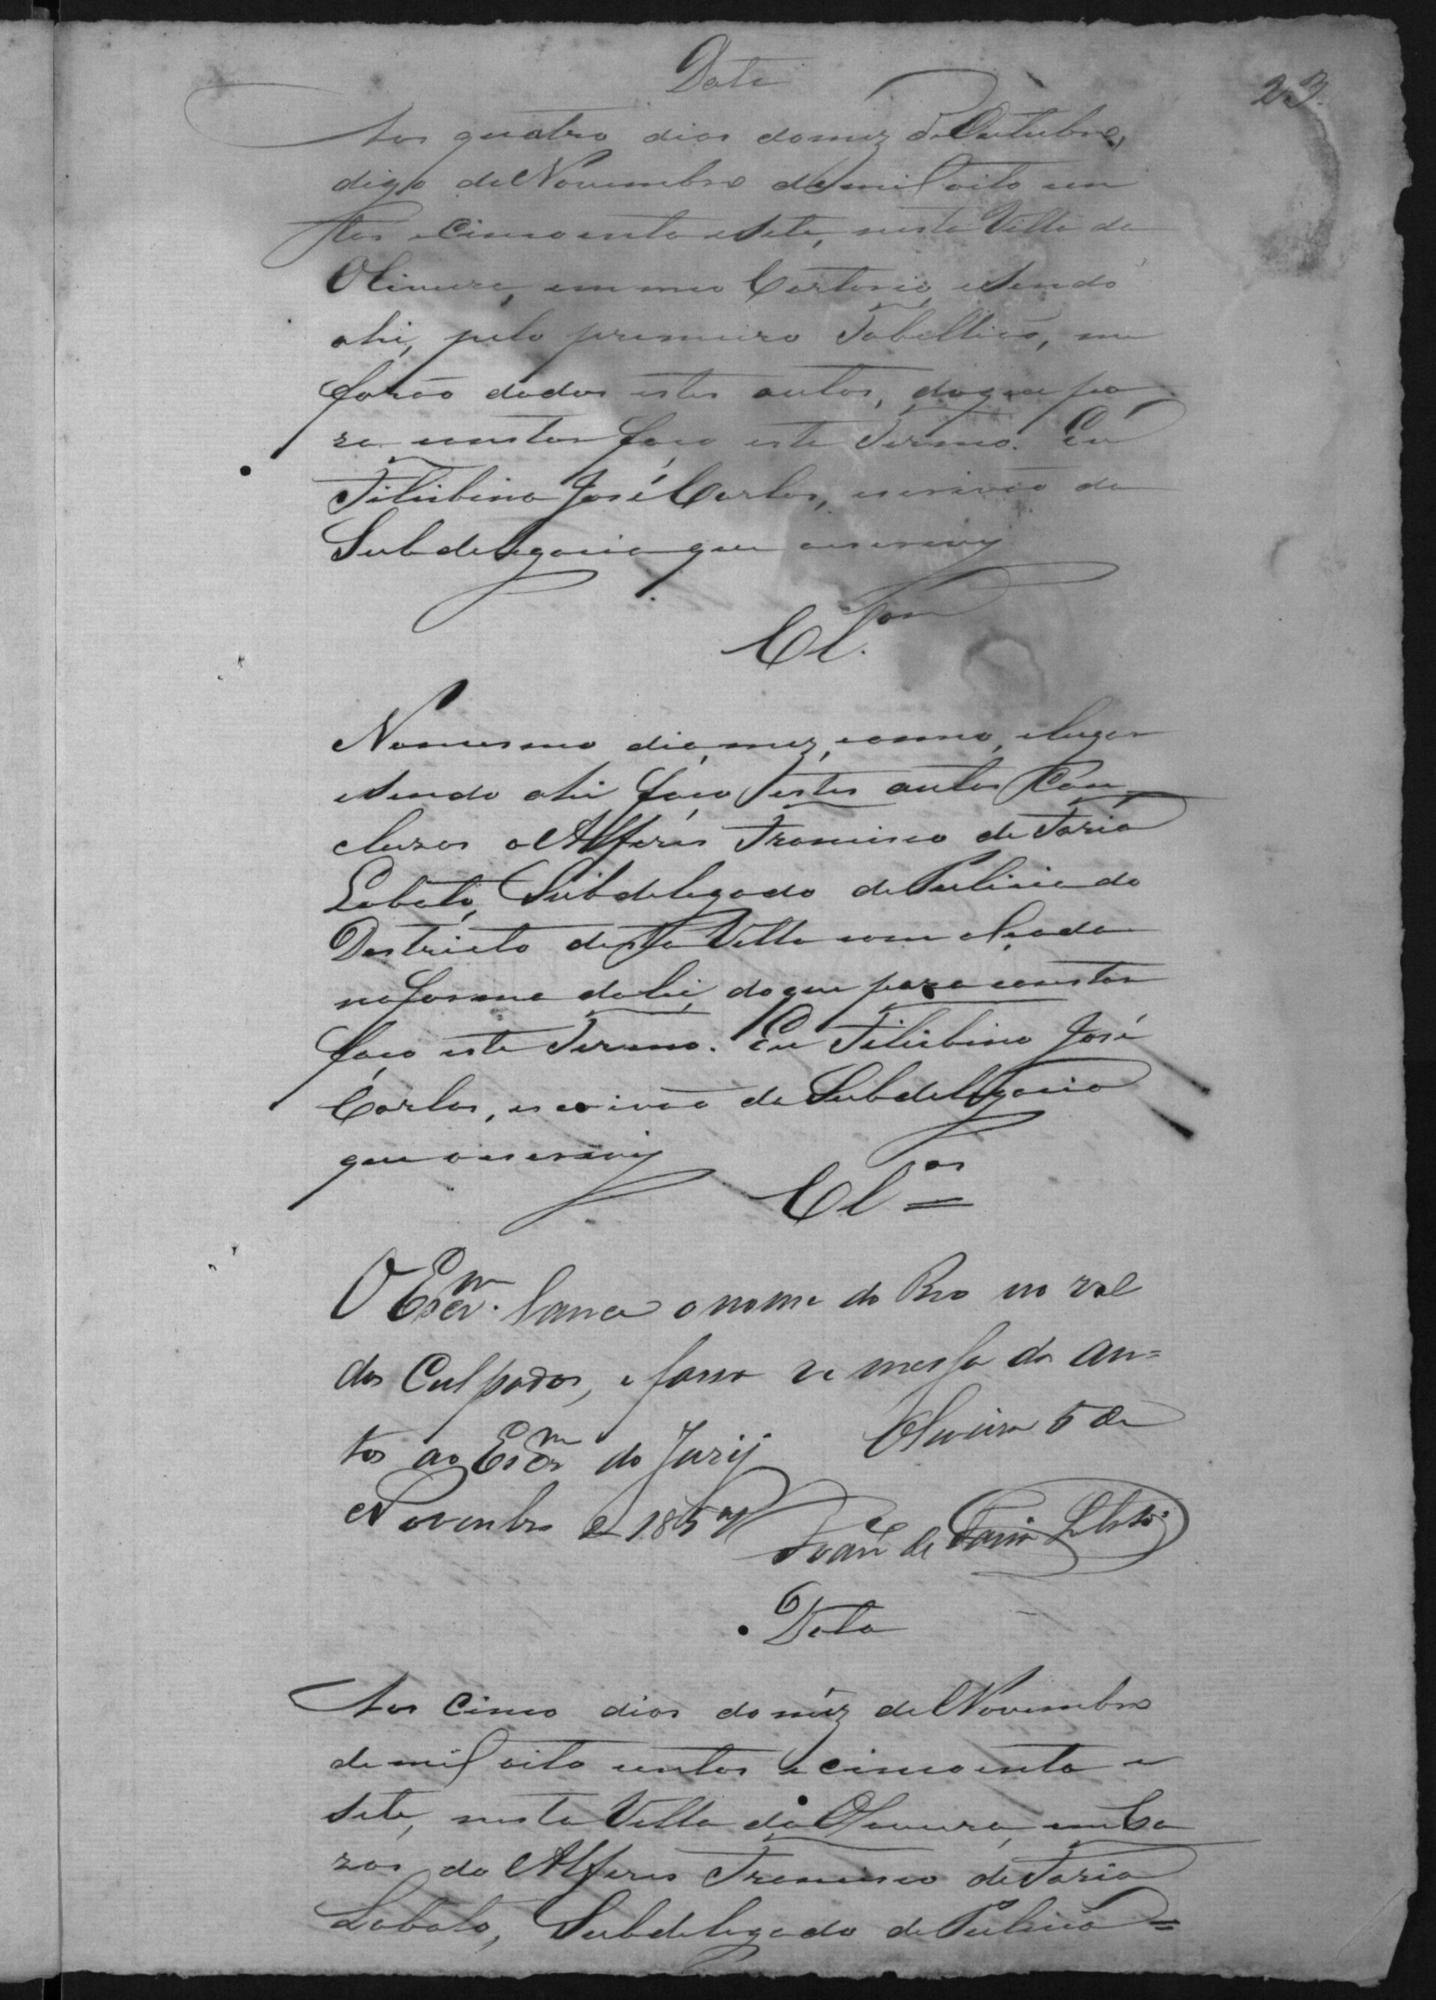 Data
23.
Aos quatro dias do mez de Outubro,
digo de Novembro de mil oito cen
tos e cincoenta e sete, nesta Villa da
Oliveira, em meu Cartorio, e sendo
ahi, pelo primeiro Tabellião, me
forão dados estes autos, do que pa
ra constar faço este Termo. Eu
José Carlos, escrivão da
Subdelegacia que o escrevy
Cl.
No mesmo dia, mez, e anno, e lugar
e sendo ahi faço estes autos Con
cluzos o Alferes Francisco de Faria
Lobato, Subdelegado de Pulicia do
Destricto desta Villa com alçada
na forma da lei, do que para constar
faço este Termo. Eu José
Carlos, escrivão da Subdelegacia
que o escrevy
Cl.os
O Escr.m lance o nome do Reo no rol
dos Culpados, e fassa remessa do au=
tos ao Escr.m do Jury Oliveira 5 de
Novembro de 1857
Fran de Faria Lobato
Data
Aos cinco dias do mêz de Novembro
de mil oito centos e cincoenta e
sete, nesta Villa da Oliveira, em Ca
zas do Alferes Francisco de Faria
Lobato, Subdelegado de Pulicia=